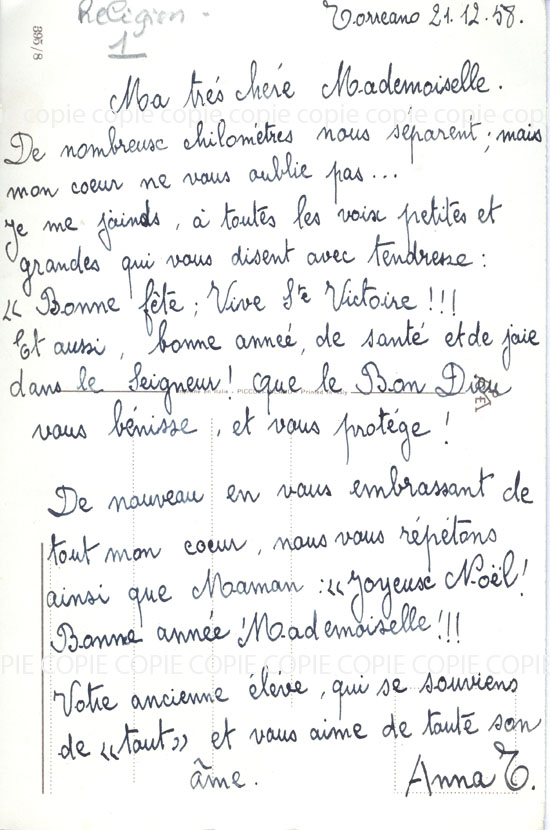 Religion.
1
895/8
Torreano 21.12.58.
Ma trés chéré Mademoiselle.
De nombreuse chilométres nous séparent; mais
mon coeur ne vous oublie pas...
Je me joinds, à toutes les voix petites et
grandes qui vous disent avec tendresse:
« Bonne fête; Vive Ste Victoire!!!
Et aussi, bonne année, de santé et de joie
dans le Seigneur! que le Bon Dieu
vous bénisse, et vous protége!
De nouveau en vous embrassant de
tout mon coeur, nous vous répétons
ainsi que Maman: «Joyeuse Noël!
Bonne année Mademoiselle!!!
Votre ancienne éléve, qui se souviens
de «tout» et vous aime de toute son
âme.
Anna T.
COPIE COPIE COPIE COPIE COPIE COPIE